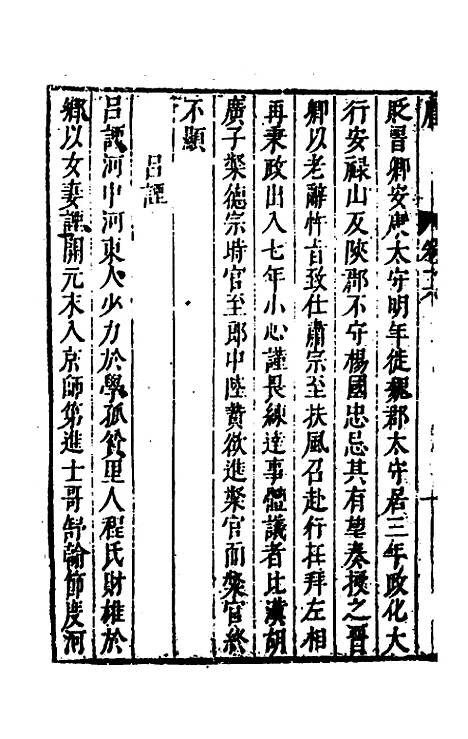 貶晉卿安康太守明年徙魏郡太守居三年政化大
行安祿山反陝郡不守楊國忠忌其有望奏授之晉
卿以老辭忤旨致仕肅宗至扶風召赴行在拜左相
再秉政出入七年小心謹畏練達事體議者比漢胡
廣子粲德宗時官至郎中陸贄欲進粲官而粲官終
不顯
呂諲
呂諲河中河東人少力於學孤貧里人程氏財雄於
鄉以女妻諲開元末入京師第進士哥舒翰節度河